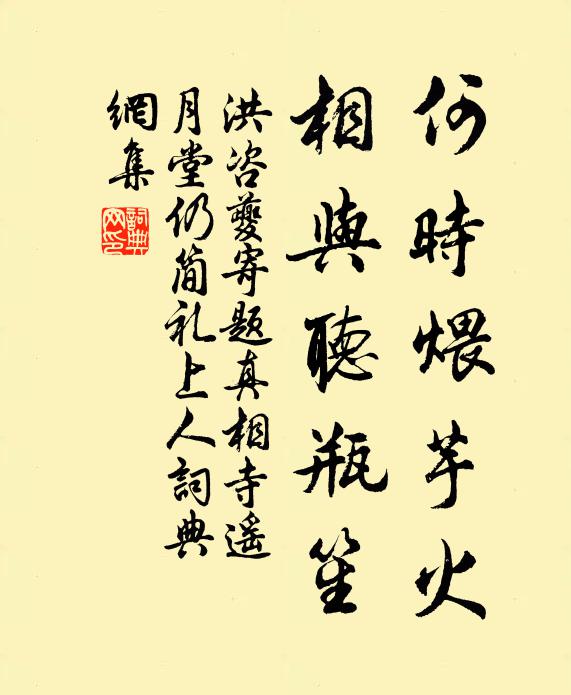 何時煨芋火
相與聽瓶笙
洪咨夔寄題真相寺遙
月堂仍簡礼上人詞典
網集
詞典
网印